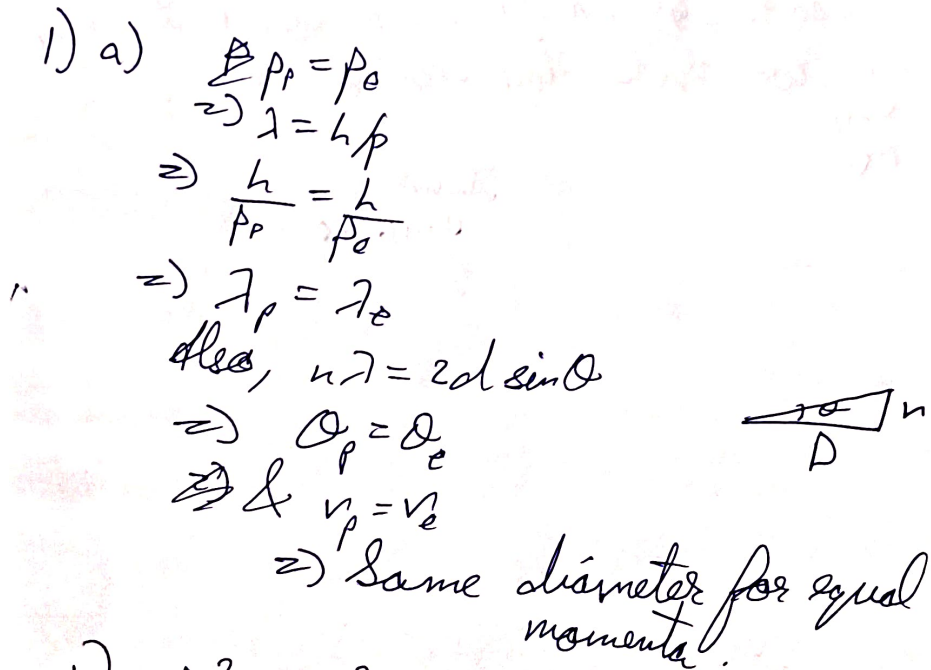 1) a) pₚ = pₑ
=) λ = h/p
=) h/pₚ = h/pₑ
=) λₚ = λₑ
Also, nλ = 2d sinθ
=) θₚ = θₑ
θ r
D
& rₚ = rₑ
=) Same diameter for equal
momenta.